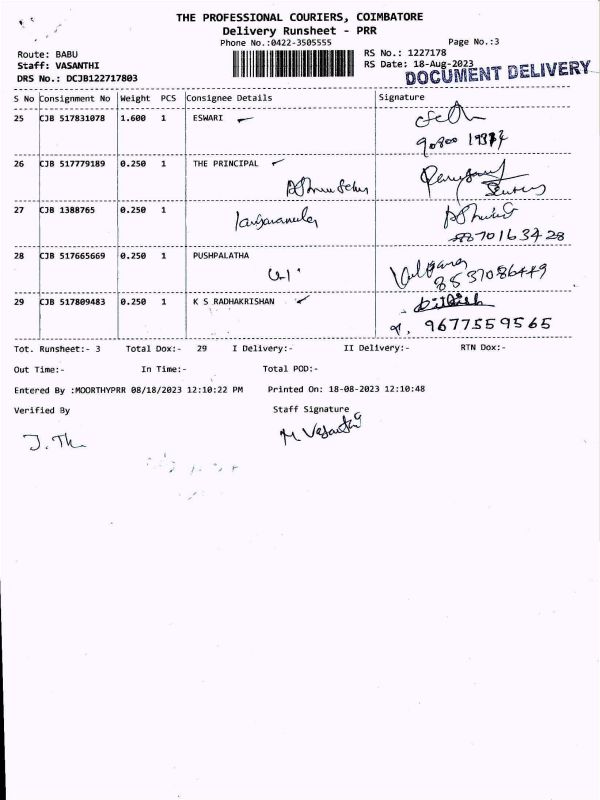 THE PROFESSIONAL COURIERS, COIMBATORE
Delivery Runsheet - PRR
Phone No.:0422-3505555 Page No.:3
Route: BABU RS No.: 1227178
Staff: VASANTHI RS Date: 18-Aug-2023
DRS No.: DCJB122717803 DOCUMENT DELIVERY
S No Consignment No Weight PCS Consignee Details Signature
25 CJB 517831078 1.600 1 ESWARI
26 CJB 517779189 0.250 1 THE PRINCIPAL
27 CJB 1388765 0.250 1
28 CJB 517665669 0.250 1 PUSHPALATHA
29 CJB 517809483 0.250 1 K S RADHAKRISHAN
9677559565
Tot. Runsheet:- 3 Total Dox:- 29 I Delivery:- II Delivery:- RTN Dox:-
Out Time:- In Time:- Total POD:-
Entered By :MOORTHYPRR 08/18/2023 12:10:22 PM Printed On: 18-08-2023 12:10:48
Verified By Staff Signature
M Vasanthi